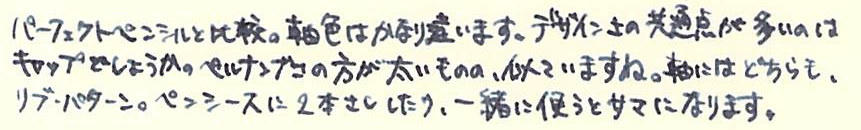 パーフェクトペンシルと比較。軸色はかなり違います。デザイン上の共通点が多いのは
キャップでしょうか。ペルナンブコの方が太いものの、似ていますね。軸にはどちらも、
リブ・パターン。ペンシースに2本さしたり、一緒に使うとサマになります。